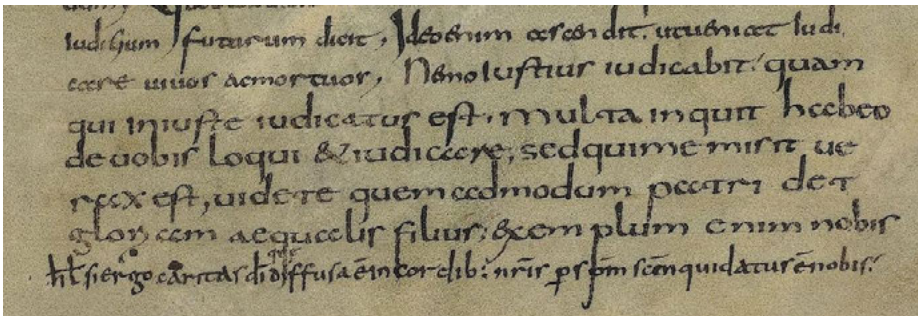 Iudicium futurum dicit, Ideo enim ascendit. ut veniat Iudi
care uiuos ac mortuos, Nemo Iustius iudicabit. quam
qui iniuste iudicatus est. Multa inquit habeo
de uobis loqui & iudicare, sed qui me misit ue
rax est, uidete quem admodum patri det
gloriam aequalis filius, &xemplum enim nobis
si ergo caritas dī diffusa ē in cordib: nr̄is ꝑ sp̄m sc̄m qui datus ē nobis.